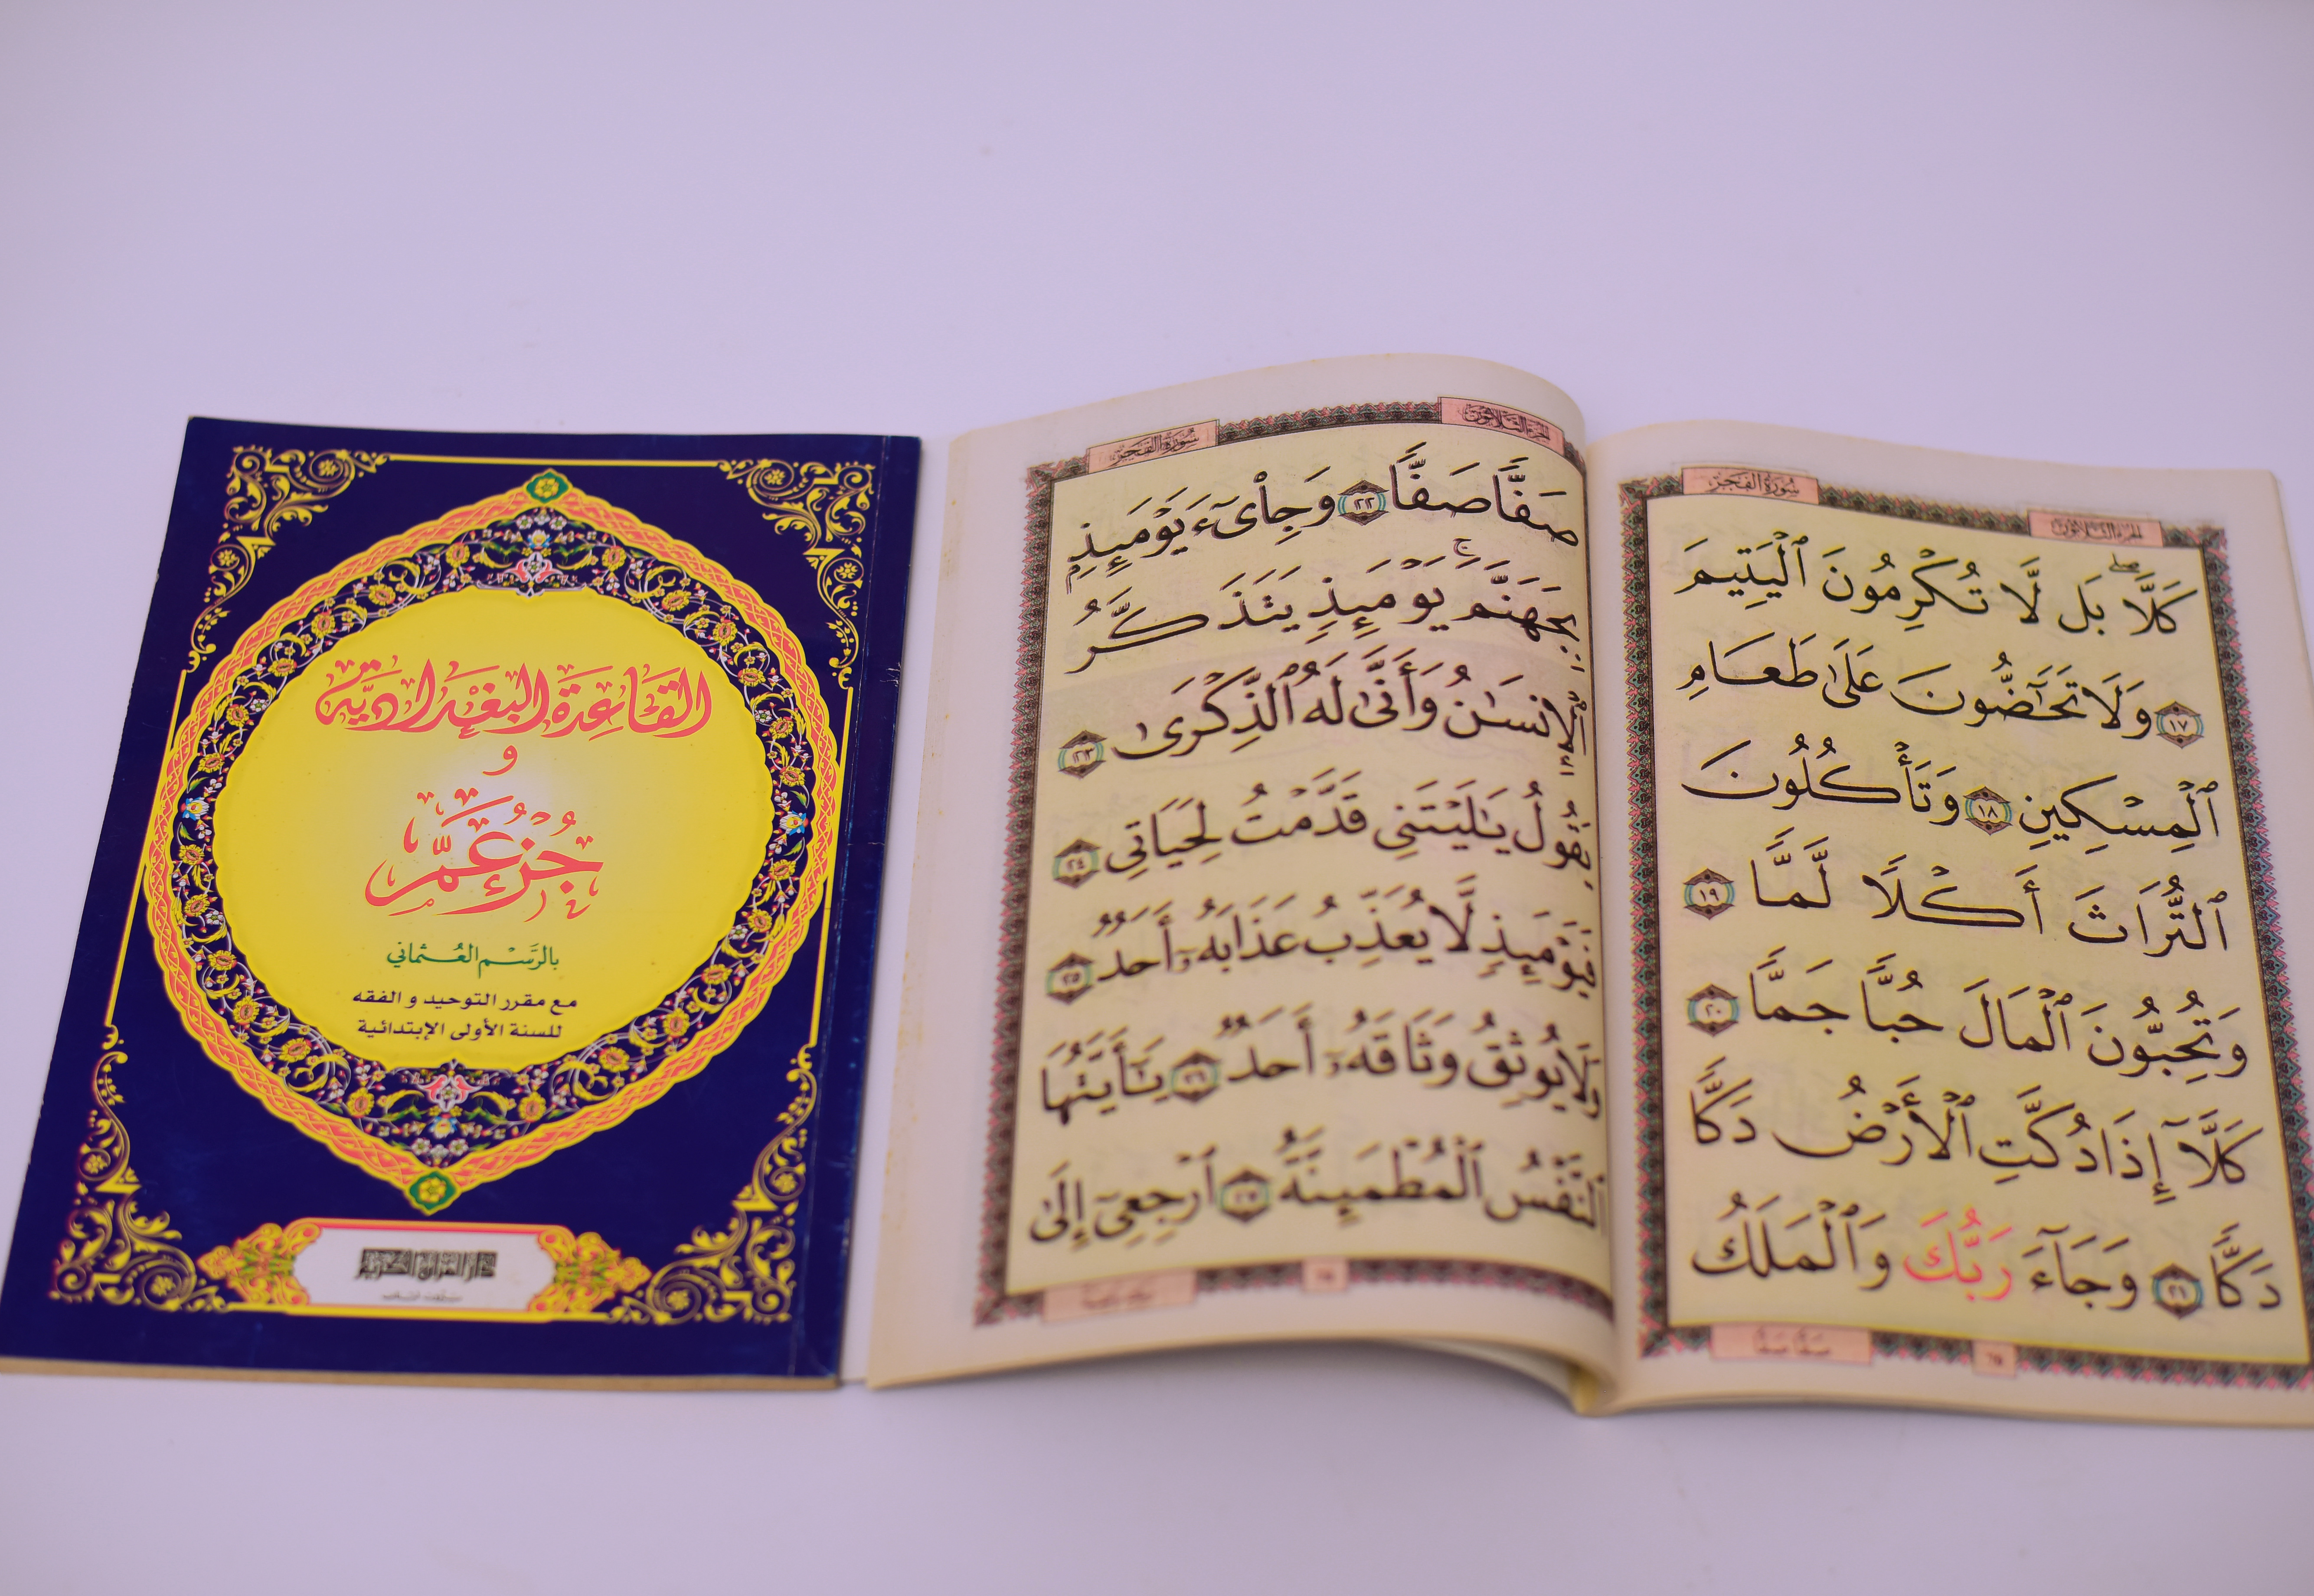 القَاعِدَة البَغْدَادِيَّة
و
جُزْء عَمَّ
بالرَّسْم العُثماني
مع مقرر التوحيد و الفقه
للسنة الأولى الإبتدائية
دار القرآن الكريم
سُورَةُ الفَجْرِ
الجزء الثلاثون
كَلَّاۖ بَل لَّا تُكْرِمُونَ ٱلْيَتِيمَ
١٧ وَلَا تَحَٰٓضُّونَ عَلَىٰ طَعَامِ
ٱلْمِسْكِينِ ١٨ وَتَأْكُلُونَ
ٱلتُّرَاثَ أَكْلًا لَّمًّا ١٩
وَتُحِبُّونَ ٱلْمَالَ حُبًّا جَمًّا ٢٠
كَلَّآ إِذَا دُكَّتِ ٱلْأَرْضُ دَكًّا
دَكًّا ٢١ وَجَآءَ رَبُّكَ وَٱلْمَلَكُ
صَفًّا صَفًّا
سُورَةُ الفَجْرِ
الجزء الثلاثون
صَفًّا صَفًّا ٢٢ وَجِا۟ىٓءَ يَوْمَئِذٍۭ
بِجَهَنَّمَۚ يَوْمَئِذٍ يَتَذَكَّرُ
ٱلْإِنسَٰنُ وَأَنَّىٰ لَهُ ٱلذِّكْرَىٰ ٢٣
يَقُولُ يَٰلَيْتَنِى قَدَّمْتُ لِحَيَاتِى ٢٤
فَيَوْمَئِذٍ لَّا يُعَذِّبُ عَذَابَهُۥٓ أَحَدٌ ٢٥
وَلَا يُوثِقُ وَثَاقَهُۥٓ أَحَدٌ ٢٦ يَٰٓأَيَّتُهَا
ٱلنَّفْسُ ٱلْمُطْمَئِنَّةُ ٢٧ ٱرْجِعِىٓ إِلَىٰ